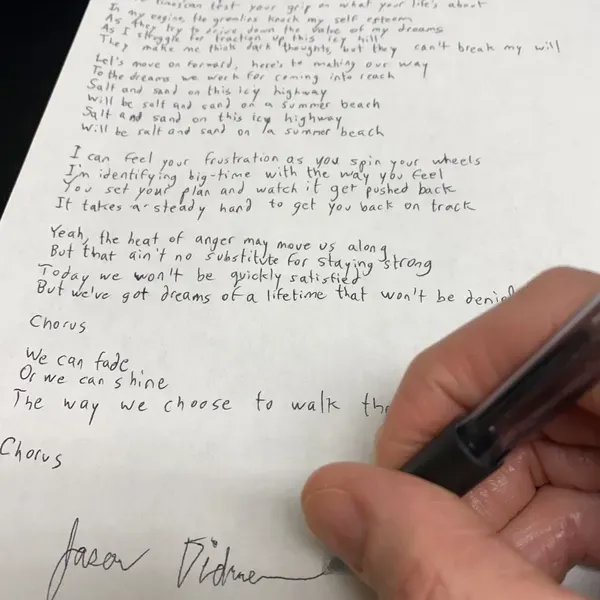 test your grip on what your life's about
In my engine, the gremlins knock my self esteem
As they try to drive down the value of my dreams
As I struggle for traction up this icy hill
They make me think dark thoughts, but they can't break my will
Let's move on forward, here's to making our way
To the dreams we work for coming into reach
Salt and sand on this icy highway
Will be salt and sand on a summer beach
Salt and sand on this icy highway
Will be salt and sand on a summer beach
I can feel your frustration as you spin your wheels
I'm identifying big-time with the way you feel
You set your plan and watch it get pushed back
It takes a steady hand to get you back on track
Yeah, the heat of anger may move us along
But that ain't no substitute for staying strong
Today we won't be quickly satisfied
But we've got dreams of a lifetime that won't be
Chorus
We can fade
Or we can shine
The way we choose to walk
Chorus
Jason